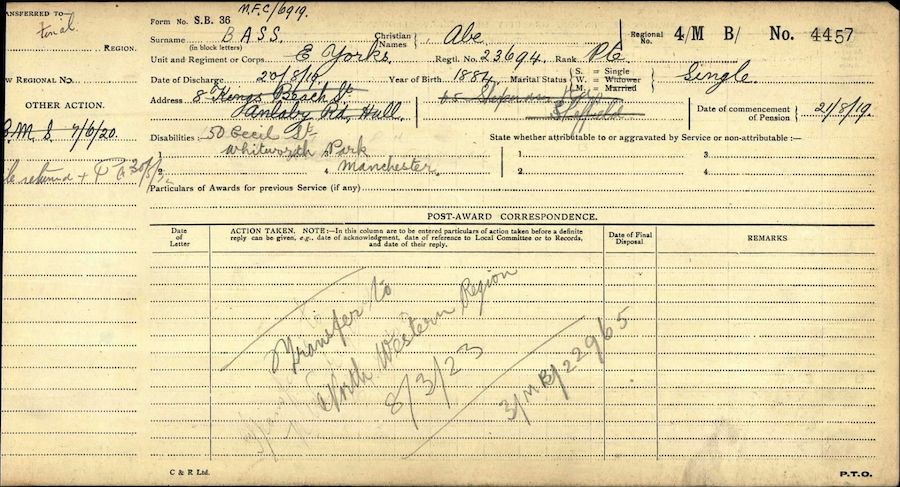 M.F.C/6919.
Form No. S.B. 36
Surname (in block letters) BASS. Christian Names Abe Regional No. 4/M B/ No. 4457
Unit and Regiment or Corps. E Yorks. Regtl. No. 23694 Rank Pte
Date of Discharge 20/8/19. Year of Birth 1884 Marital Status S. = Single W. = Widower M. = Married Single.
Address 8 Kings Bench St
Anlaby Rd, Hull. Sheffield
Date of commencement of Pension 21/8/19.
Disabilities:— 50 Cecil St. State whether attributable to or aggravated by Service or non-attributable:—
Whitworth Park
1. 3.
3. 4. Manchester. 2. 4.
Particulars of Awards for previous Service (if any)
POST-AWARD CORRESPONDENCE.
Date of Letter
ACTION TAKEN. NOTE:—In this column are to be entered particulars of action taken before a definite
reply can be given, e.g., date of acknowledgment, date of reference to Local Committee or to Records,
and date of their reply.
Date of Final Disposal
REMARKS
Transfer to
North Western Region
8/3/23
3/MB/22965
C & R Ltd.
P.T.O.
ANSFERRED TO—
REGION.
W REGIONAL NO.
OTHER ACTION.
7/6/20.
returned +